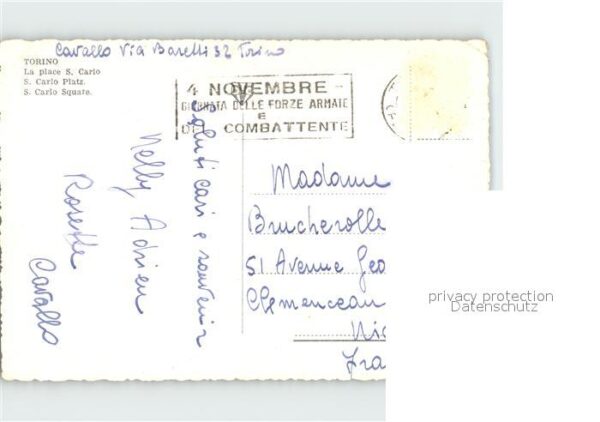 Cavallo Via Baretti 32 Torino
TORINO
La place S. Carlo
S. Carlo Platz.
S. Carlo Square.
4 NOVEMBRE -
GIORNATA DELLE FORZE ARMATE
E
DEL COMBATTENTE
saluti cari e souvenir
Nelly Adrien
Rosette
Cavallo
Madame
Brucherolle
51 Avenue Geo
Clemenceau
Nic
Fra
privacy protection
Datenschutz